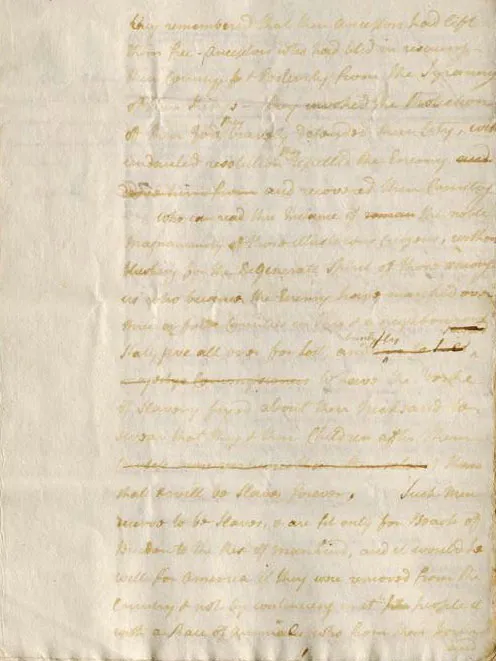 they remembered that their Ancestors had left
them free - Ancestors who had bled in rescuing
their Country & Posterity from the Tyranny
of their Kings - they invoked the Protection
of their Gods they bravely defended their City, with
undaunted resolution they repelled the Enemy and
and recovered their Country
who can read this Instance of roman the noble
magnanimity of those illustrious pagans, without
blushing for the Degenerate Spirit of those among
us who because the Enemy have marched over
three or four Counties in a neighbouring
State, give all over for lost, and
to have the Yorke
of Slavery fixed about their Necks and to
swear that they & their Children after them
them
shall & will be Slaves forever. Such Men
deserve to be Slaves, & are fit only for Beasts of
Burden to the Rest of Mankind, and it would be
well for America if they were removed from the
Country & not by continuing in it people it
with a Race of Animals who from their
and